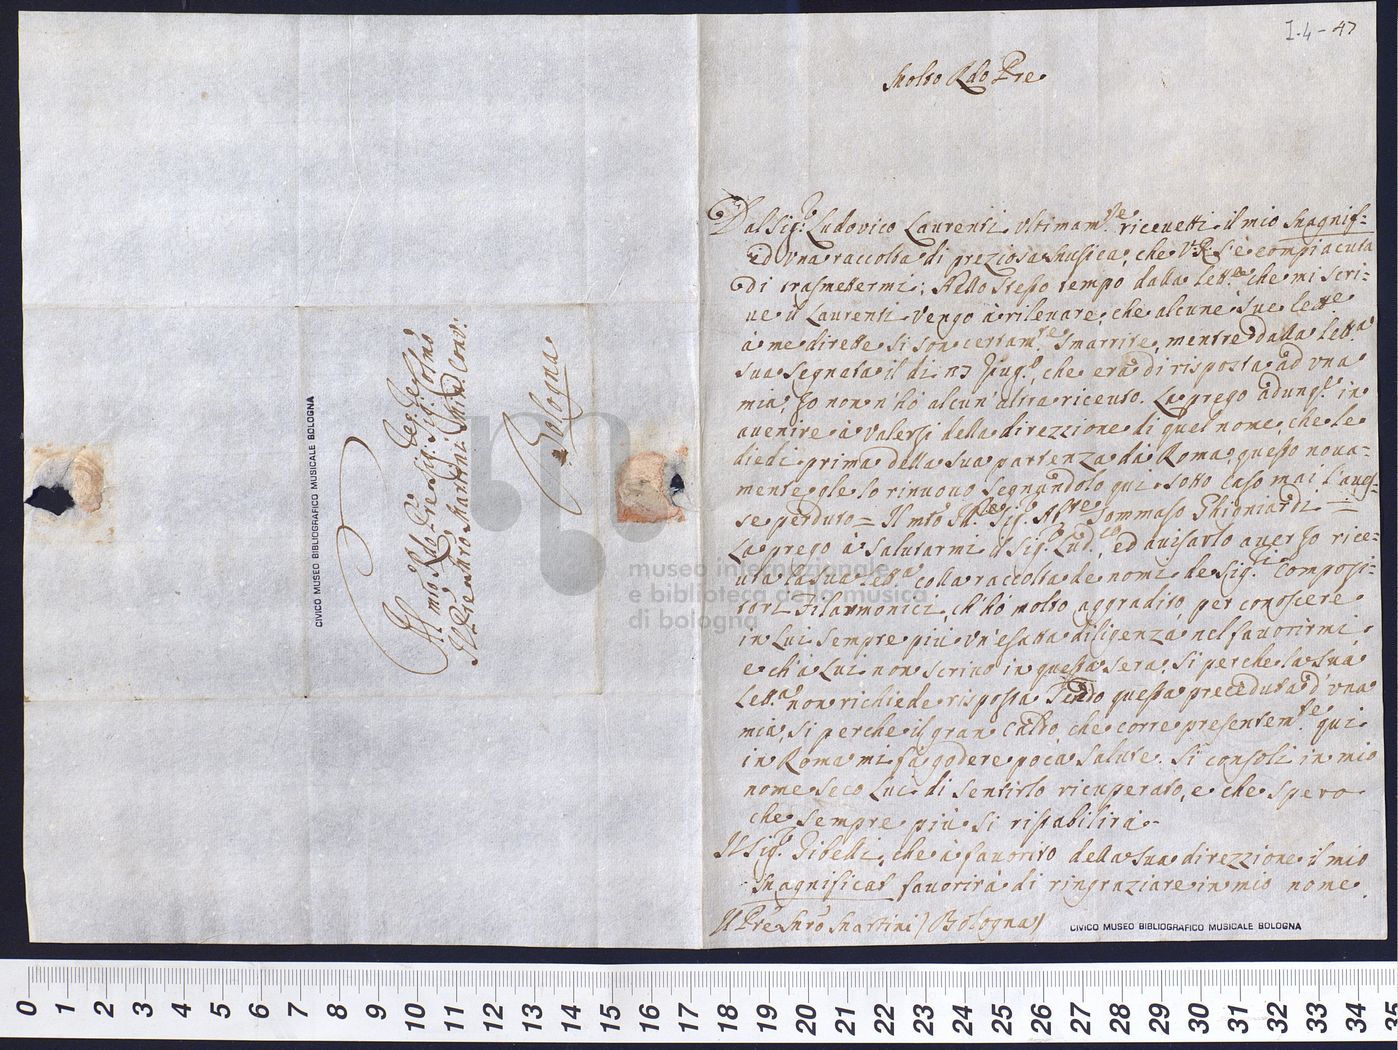 I.4-47
Molto Rdo Pre
Dal Sig.r Ludovico Laurenti ultimam.te riceuetti il mio Magnif:
ed una raccolta di preziosa Musica, che V.R. s'è compiacuta
di trasmettermi; Nello stesso tempo dalla lett.a che mi scri=
ue il Laurenti vengo à rileuare, che alcune sue lett.e
à me dirette si son certam.te smarrite, mentre dalla lett.a
sua segnata il di 13 Giug.o, che era di risposta ad una
mia, Io non n'hò alcun'altra riceuto. La prego adung.e in
auenire à valersi della direzzione di quel nome, che le
diedi prima della sua partenza da Roma, questo noua=
mente gle lo rinuouo segnandolo qui sotto caso mai l'aues=
se perduto = Il mto Ill.re Sig.r Tommaso Ghigniardi =
La prego à salutarmi il Sig.r Lud.co, ed auisarlo auer Io rice=
uta la sua let.a colla raccolta de nomi de Sig.ri Composi=
tori Filarmonici, ch'hò molto aggradito per conoscere
in Lui sempre più un'esatta diligenza nel fauorirmi,
e ch'à Lui non scriuo in questa sera, si perche la sua
Lett.a non richiede risposta questa preceduta d'una
mia, si perche il gran Caldo, che corre presentem.te qui
in Roma mi fà godere poca salute. Si consoli in mio
nome seco Lui di sentirlo ricuperato, e che spero
che sempre più si ristabilirà.
Il Sig.r Gibelli, che à fauorito della sua direzzione il mio
Magnificat fauorirà di ringraziare in mio nome.
Il Pre Mro Martini (Bologna)
CIVICO MUSEO BIBLIOGRAFICO MUSICALE BOLOGNA
Al Molto Rdo Pre Sig.r Sig.r
Il Pre Mro Martini Min. Conv.
Bologna
CIVICO MUSEO BIBLIOGRAFICO MUSICALE BOLOGNA
museo internazionale
e biblioteca della musica
di bologna
0 1 2 3 4 5 6 7 8 9 10 11 12 13 14 15 16 17 18 19 20 21 22 23 24 25 26 27 28 29 30 31 32 33 34 35